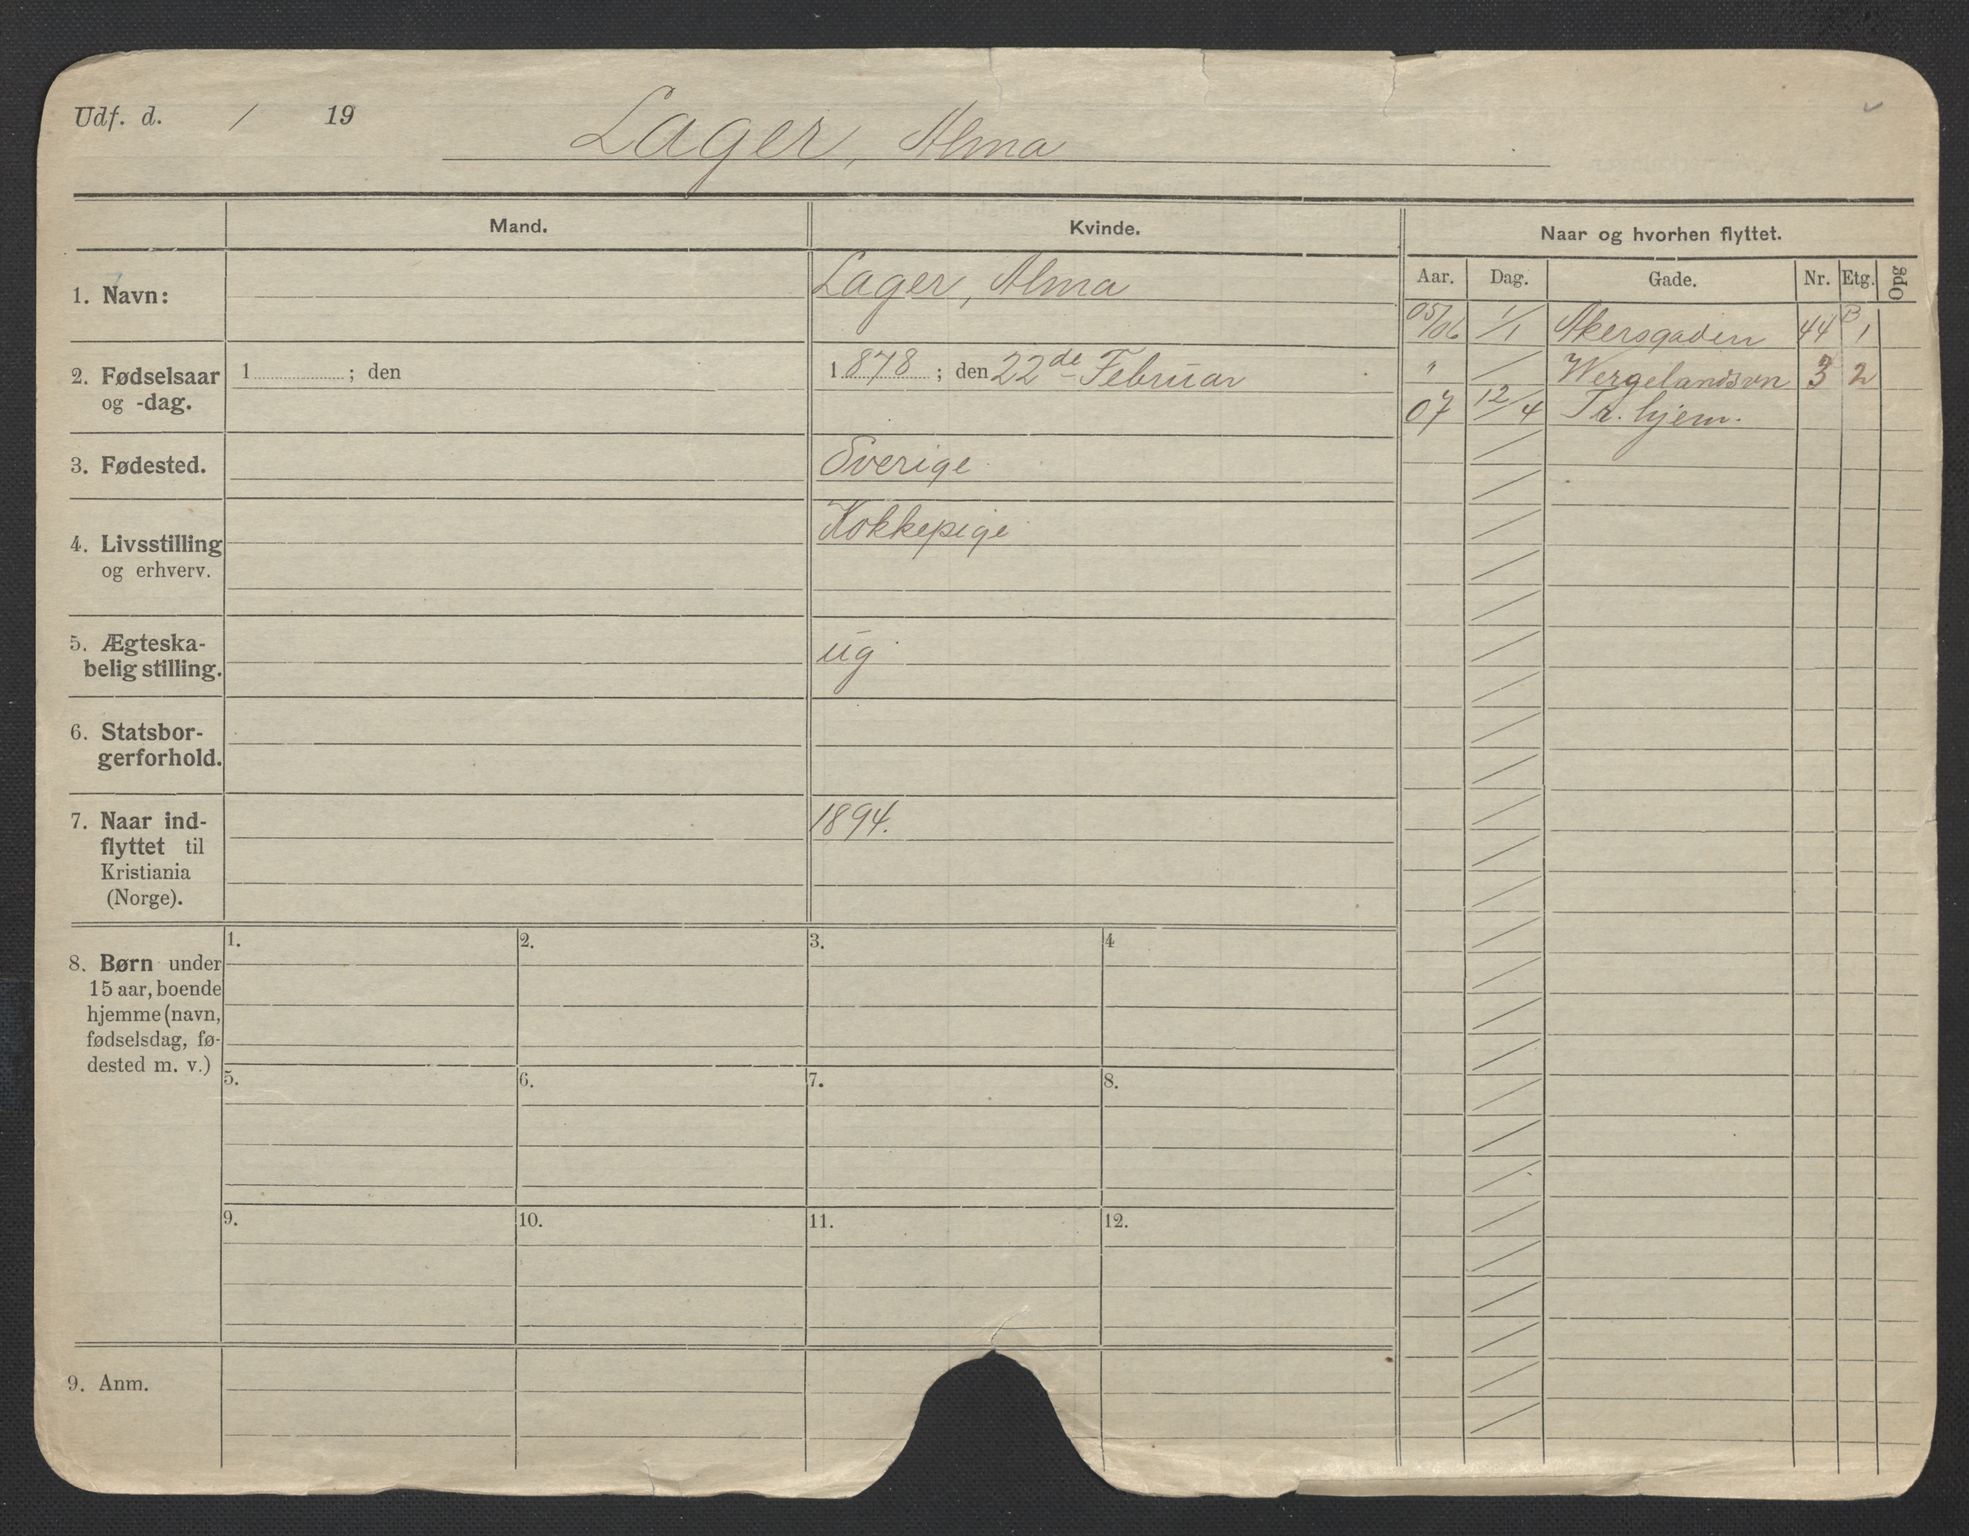 Udf. d. / 19
Lager, Alma
Mand.
Kvinde.
Naar og hvorhen flyttet.
Aar. Dag. Gade. Nr. Etg. Opg
1. Navn:
Lager, Alma
05/06 1/1 Akersgaden 44 B 1
" / Wergelandsvn 3 2
07 12/4 Tr. hjem.
2. Fødselsaar
og -dag.
1 ; den
1878; den 22de Februar
3. Fødested.
Sverige
4. Livsstilling
og erhverv.
Kokkepige
5. Ægteska-
belig stilling.
ug
6. Statsbor-
gerforhold.
7. Naar ind-
flyttet til
Kristiania
(Norge).
1894.
8. Børn under
15 aar, boende
hjemme (navn,
fødselsdag, fø-
dested m. v.)
1. 2. 3. 4
5. 6. 7. 8.
9. 10. 11. 12.
9. Anm.